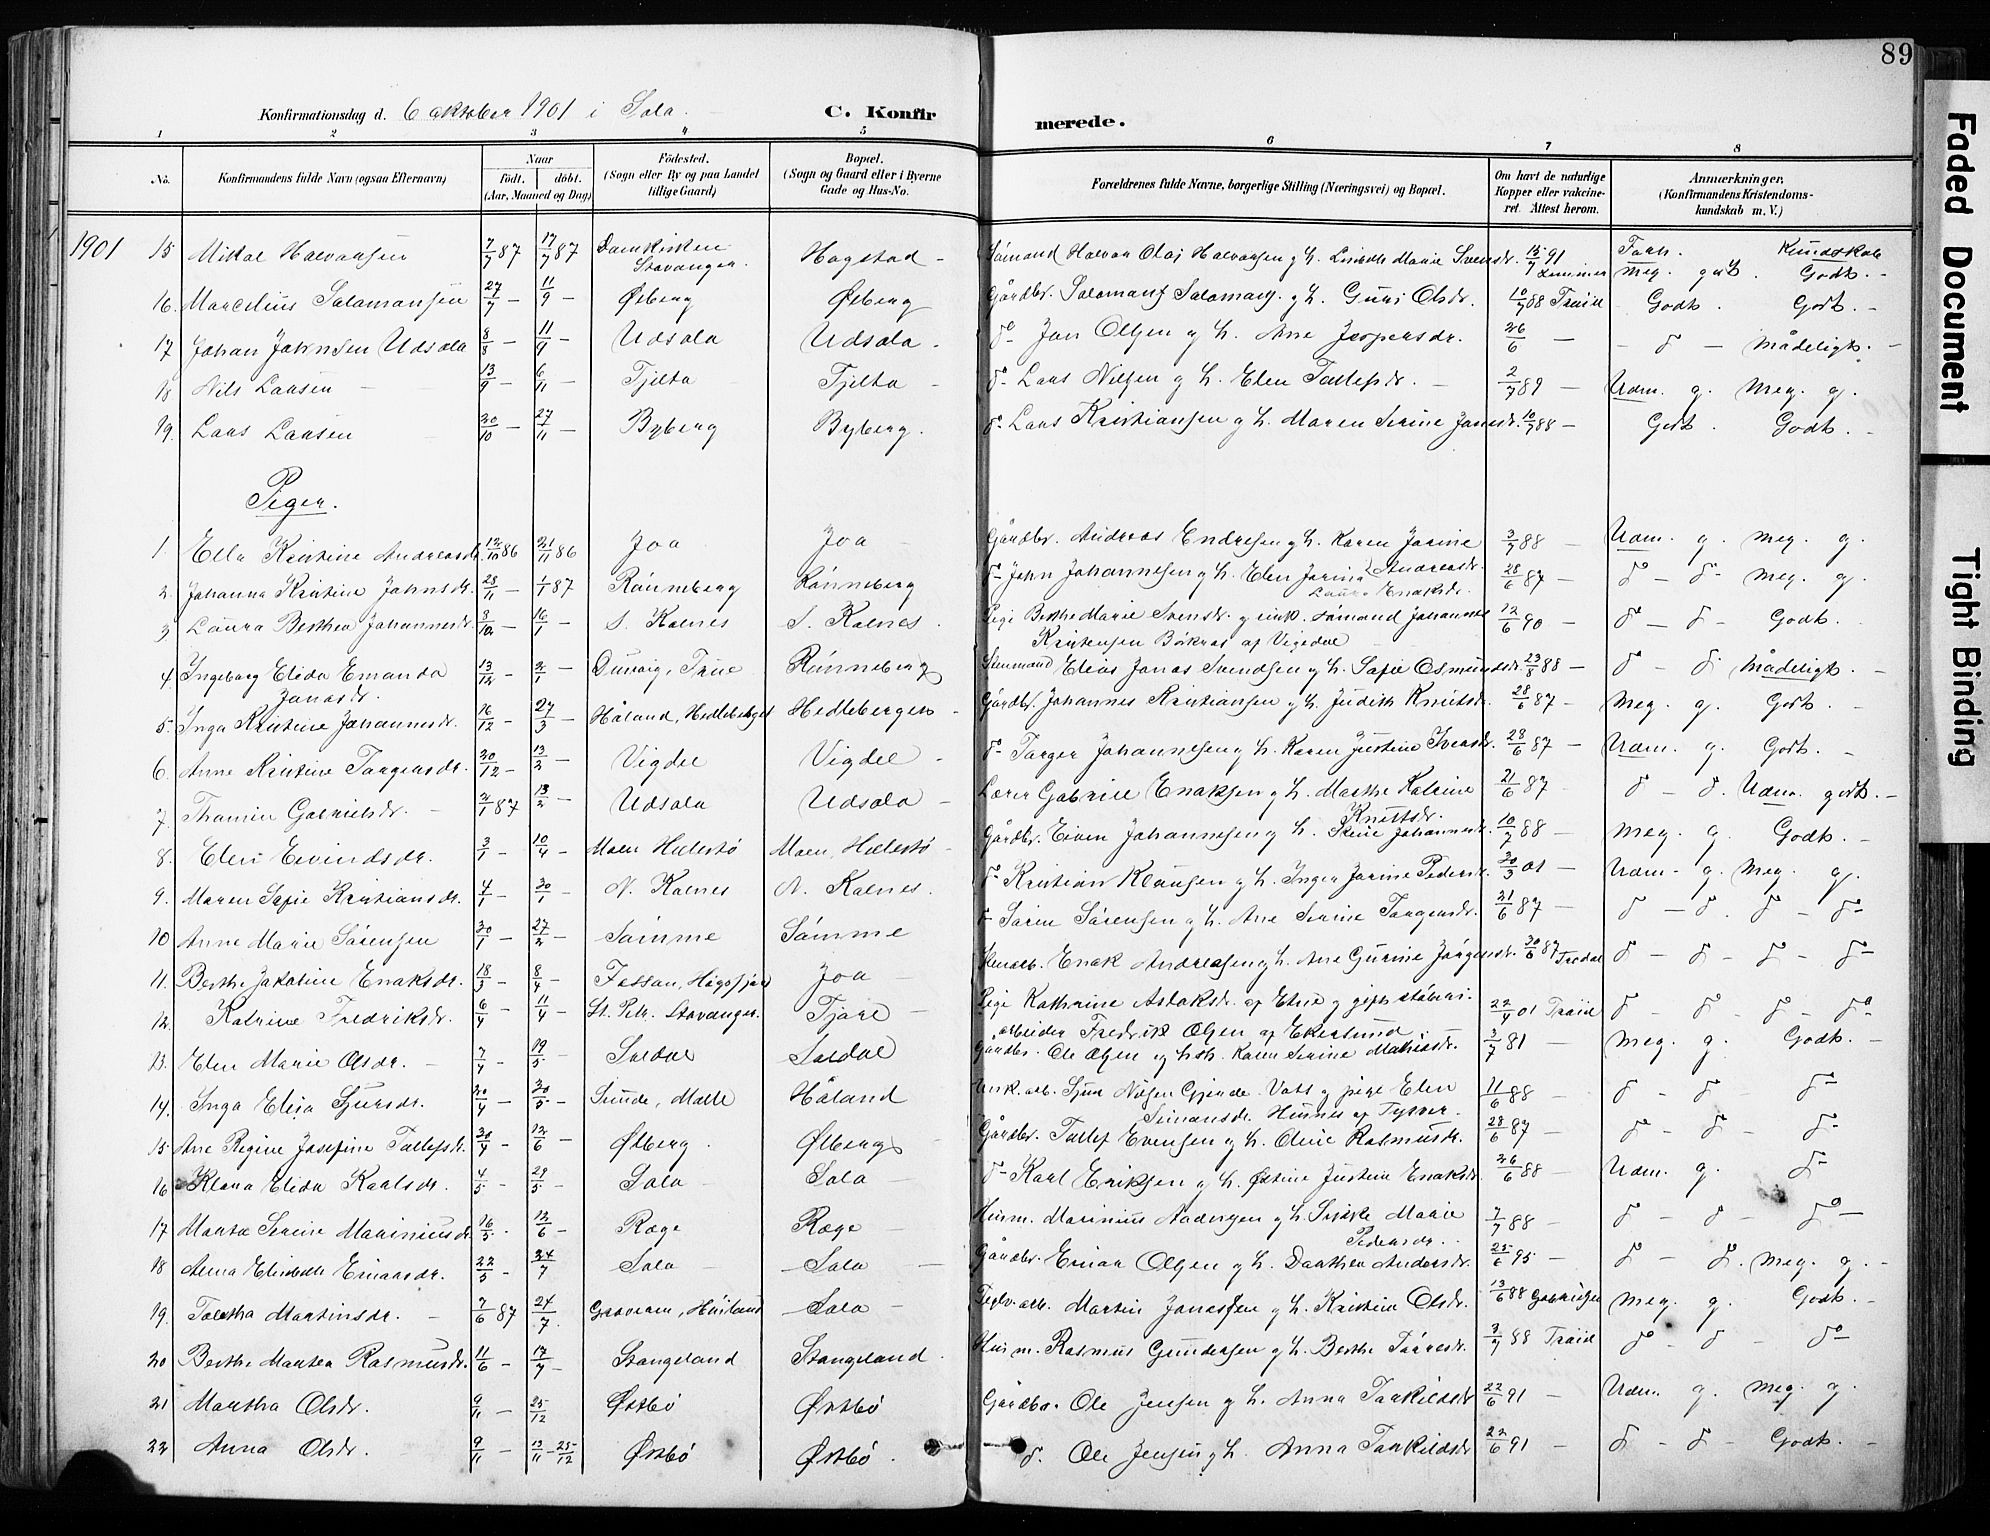 89
Konfirmationsdag d. 6 oktober 1901 i Sola. C. Konfirmerede.
1 2 3 4 5 6 7 8
No. Konfirmandens fulde Navn (ogsaa Efternavn) Naar født. døbt. (Aar, Maaned og Dag) Fødested. (Sogn eller By og paa Landet tillige Gaard) Bopæl. (Sogn og Gaard eller i Byerne Gade og Hus-No. Forældrenes fulde Navne, borgerlige Stilling (Næringsvei) og Bopæl. Om havt de naturlige Kopper eller vakcineret. Attest herom. Anmærkninger. (Konfirmandens Kristendomskundskab m. V.)
1901 15 Mikal Halvorsen 7/7 87 17/7 87 Domkirken Stavanger. Hogstad - Sömand Halvor Olaj Halvorsen g h. Lisbeth Marie Svendsdr. 15/7 91 Forh. Kundskab
Meg. godt. Godt. -
16. Marcelius Salamonsen 27/7 - 11/9 - Ølberg Ølberg Gårdbr. Salamon Salamons. g h. Guri Olsdr. 10/7 88 Godt. Godt. -
17 Johan Johnsen Udsola 8/8 - 11/9 - Udsola Udsola - do Jon Olsen g h. Ane Jespersdr. 26/6 - - do - Mådeligt. -
18 Nils Larsen - 13/9 - 6/11 - Tjelta Tjelta - do Lars Nilsen g h. Elen Tollefsdr. - 2/7 89 - Udm. g. Meg. g.
19. Lars Larsen 30/10 - 27/11 - Byberg Byberg. do Lars Kristiansen g h. Maren Serine Jonasdr. 10/7 88 - Godt. Godt. -
Piger.
1 Ella Kristine Andreasdr. 12/10 86 21/11 86 Joa Joa - Gårdbr. Andreas Endresen g h. Karen Jorine 3/7 88 - Udm. g. Meg. g.
Andreasdr.
2. Johanna Kristine Johnsdr. 28/11 - 1/1 87 Rönneberg Rönneberg do John Johannesen g h. Elen Jorina 28/6 87 - do - do - Meg. g.
Laura Enoksdr.
3 Laura Berthea Johannesdr. 3/12 - 16/1 - S. Kolnes S. Kolnes. Pige Berthe Marie Svensdr. g enk. sömand Johannes 12/6 90 do - do - Godt. -
Kristensen Bökras af Vigedal
4. Ingeborg Elida Emanda 13/12 - 2/1 - Dusvig, True Rönneberg Stenmand Elias Jonas Svendsen g h. Sofie Osmundsdr. 23/8 88 - do - do Mådeligt. -
Jonasdr.
5. Inga Kristine Johannesdr. 16/12 - 27/3 - Håland, Hedleberget Hedlebergen - Gårdbr. Johannes Kristiansen g h. Judith Knutsdr. 28/6 87 - Meg. g. Godt. -
6. Anne Kristine Torgersdr. 30/12 - 13/2 - Vigdel Vigdel - do Torger Johannesen g h. Karen Justine Iversdr. 28/6 87 - Udm. g. Godt. -
7. Thamin Gabrielsdr. - 2/1 87 13/2 - Udsola Udsola - Lærer Gabriel Enoksen g h. Marthe Katrine 21/6 87 - do - do. Udm. godt. -
Knutsdr.
8. Elen Eivindsdr. 3/1 - 10/4 - Moen Hålestø Moen, Hålestø - Gårdbr. Eiven Johannesen g h. Serine Johannesdr. 10/7 88 - Meg. g. Godt. -
9. Maren Sofie Kristiansdr. 4/1 - 30/1 - N. Kolnes N. Kolnes. do Kristian Klausen g h. Inger Jorine Pedersdr. 30/3 01 - Udm. - g. Meg. g.
10 Anne Marie Sörensen 30/1 - 27/2 - Sömme Sömme do Sören Sörensen g h. Ane Serine Torgersdr. 21/6 87 - do - do. do - do -
11. Berthe Jakobine Enoksdr. 18/3 - 8/4 - Fossan, Högsfjord Joa Stenarb. Enok Andreasen g h. Ane Gurine Jörgensdr. 30/6 87 do - do - do - do -
12. Katrine Fredriksdr. 6/4 - 11/4 - St. Petr. Stavanger. Tjora - Pige Kathrine Aslaksdr. af Etne g gift støberi- 22/4 01 do - do - do - do
arbeider Fredrik Olsen af Ekersund
13. Elen Marie Olsdr. - 7/4 - 19/5 - Soldal Soldal Gårdbr. Ole Olsen g hstr. Karen Serine Mathiasdr. 3/7 81 - Meg. g. Godt. -
14. Inga Elisa Sjursdr. 20/4 - 30/5 - Sunde, Malle Håland Unk. arb. Sjur Nilsen Gjerde. Vats g pige Elen 11/6 88 - do - do - do -
Simonsdr. Hinnes af Tysver.
15 Ane Regine Josefine Tollefsdr. 30/4 - 12/6 - Ølberg. Ølberg Gårdbr. Tollef Evensen g h. Oline Rasmusdr. 28/6 87 - do - do - do -
16 Klara Elida Karlsdr. 4/5 - 29/5 - Sola - Sola - do Karl Eriksen g h. Østine Justine Enoksdr. 26/6 88 - Udm. g. do -
17 Marta Serine Mariniusdr. 16/5 - 12/6 - Ræge Ræge Husm. Marinius Aadersen g h. Siske Marie 7/7 88 - do - do - do -
Pedersdr.
18 Anna Elisabeth Einarsdr. 22/5 - 24/7 - Sola - Sola - Gårdbr. Einar Olsen g h. Dorthea Andersdr. 25/6 95 - do - do. Meg. g. -
19. Taletha Martinsdr. - 7/6 87 24/7 - Graveren, Höiland Sola - Teglv. arb. Martin Jonassen g h. Kristine Olsdr. 13/6 88 Gabrielsen Meg. g. Godt. -
20 Berthe Martea Rasmusdr. 11/6 - 17/7 - Stangeland Stangeland. Husm. Rasmus Gundersen g h. Berthe Tøresdr. 3/7 88 do - do - do -
21 Martha Olsdr. 9/11 - 25/12 - Østbö Østbö Gårdbr. Ole Jensen g h. Anna Torkildsdr. 22/6 91 - Udm. g. Meg. g.
22 Anna Olsdr. 9/11 - 13/11 - 25/12 Østbö Østbö. do. Ole Jensen g h. Anna Torkildsdr. 22/6 91 - do - do - Godt. -
Faded Document
Tight Binding